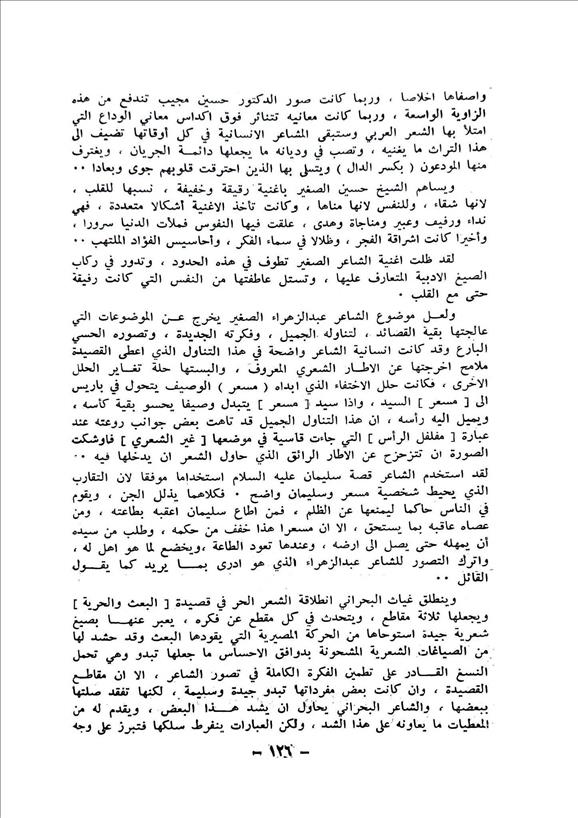 واصفاها اخلاصا ، وربما كانت صور الدكتور حسين مجيب تندفع من هذه
الزاوية الواسعة ، وربما كانت معانيه تتناثر فوق اكداس معاني الوداع التي
امتلأ بها الشعر العربي وستبقى المشاعر الانسانية في كل أوقاتها تضيف الى
هذا التراث ما يغنيه ، وتصب في وديانه ما يجعلها دائمة الجريان ، ويغترف
منها المودعون ( بكسر الدال ) ويتسلى بها الذين احترقت قلوبهم جوى وبعادا ٠٠
ويساهم الشيخ حسين الصغير باغنية رقيقة وخفيفة ، نسبها للقلب ،
لانها شقاء ، وللنفس لانها مناها ، وكانت تأخذ الاغنية أشكالا متعددة ، فهي
نداء ورفيف وعبير ومناجاة وهدى ، علقت فيها النفوس فملأت الدنيا سرورا ،
وأخيرا كانت اشراقة الفجر ، وظلالا في سماء الفكر ، وأحاسيس الفؤاد الملتهب ٠٠
لقد ظلت اغنية الشاعر الصغير تطوف في هذه الحدود ، وتدور في ركاب
الصيغ الادبية المتعارف عليها ، وتستل عاطفتها من النفس التي كانت رفيقة
حتى مع القلب ٠
ولعل موضوع الشاعر عبدالزهراء الصغير يخرج عن الموضوعات التي
عالجتها بقية القصائد ، لتناوله الجميل ، وفكرته الجديدة ، وتصوره الحسي
البارع وقد كانت انسانية الشاعر واضحة في هذا التناول الذي اعطى القصيدة
ملامح اخرجتها عن الاطار الشعري المعروف ، والبستها حلة تغاير الحلل
الاخرى ، فكانت حلل الاختفاء الذي ابداه ( مسعر ) الوصيف يتحول في باريس
الى [ مسعر ] السيد ، واذا سيد [ مسعر ] يتبدل وصيفا يحسو بقية كأسه ،
ويميل اليه رأسه ، ان هذا التناول الجميل قد تاهت بعض جوانب روعته عند
عبارة [ مفلفل الرأس ] التي جاءت قاسية في موضعها [ غير الشعري ] فاوشكت
الصورة ان تتزحزح عن الاطار الرائق الذي حاول الشعر ان يدخلها فيه ٠٠
لقد استخدم الشاعر قصة سليمان عليه السلام استخداما موفقا لان التقارب
الذي يحيط شخصية مسعر وسليمان واضح ٠ فكلاهما يذلل الجن ، ويقوم
في الناس حاكما ليمنعها عن الظلم ، فمن اطاع سليمان اعقبه بطاعته ، ومن
عصاه عاقبه بما يستحق ، الا ان مسعرا هذا خفف من حكمه ، وطلب من سيده
أن يمهله حتى يصل الى ارضه ، وعندها تعود الطاعة ،ويخضع لما هو اهل له ،
واترك التصور للشاعر عبدالزهراء الذي هو ادرى بما يريد كما يقول
القائل ٠٠
وينطلق غياث البحراني انطلاقة الشعر الحر في قصيدة [ البعث والحرية ]
ويجعلها ثلاثة مقاطع ، ويتحدث في كل مقطع عن فكره ، يعبر عنها بصيغ
شعرية جيدة استوحاها من الحركة المصيرية التي يقودها البعث وقد حشد لها
من الصياغات الشعرية المشحونة بدوافق الاحساس ما جعلها تبدو وهي تحمل
النسغ القادر على تطمين الفكرة الكاملة في تصور الشاعر ، الا ان مقاطع
القصيدة ، وان كانت بعض مفرداتها تبدو جيدة وسليمة ، لكنها تفقد صلتها
ببعضها ، والشاعر البحراني يحاول ان يشد هذا البعض ، ويقدم له من
المعطيات ما يعاونه على هذا الشد ، ولكن العبارات ينفرط سلكها فتبرز على وجه
– ١٢٦ –